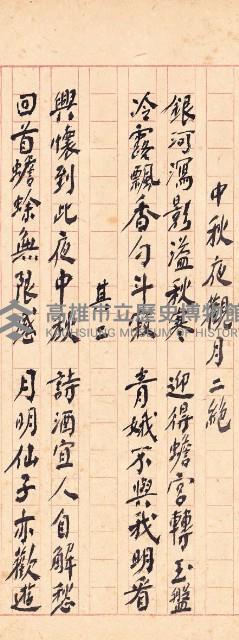 中秋夜觀月二絶
銀河瀉影溢秋寒 迎得蟾宮轉玉盤
冷露飄香勻斗 青娥不與我明看
其二
興懷到此夜中秋 詩酒宜人自解愁
回首蟾蜍無限感 月明仙子亦歡遊
高雄市立歷史博物館
KAOHSIUNG MUSEUM OF HISTORY